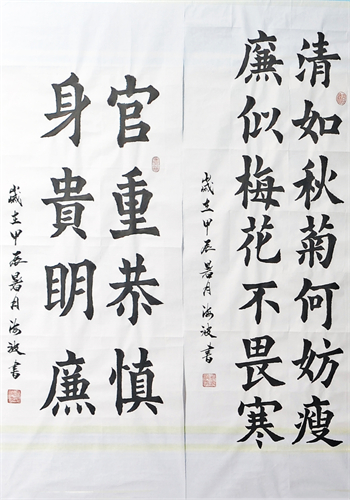 清如秋菊何妨瘦
廉似梅花不畏寒
歲在甲辰暑月海波書
官重恭慎
身貴明廉
歲在甲辰暑月海波書